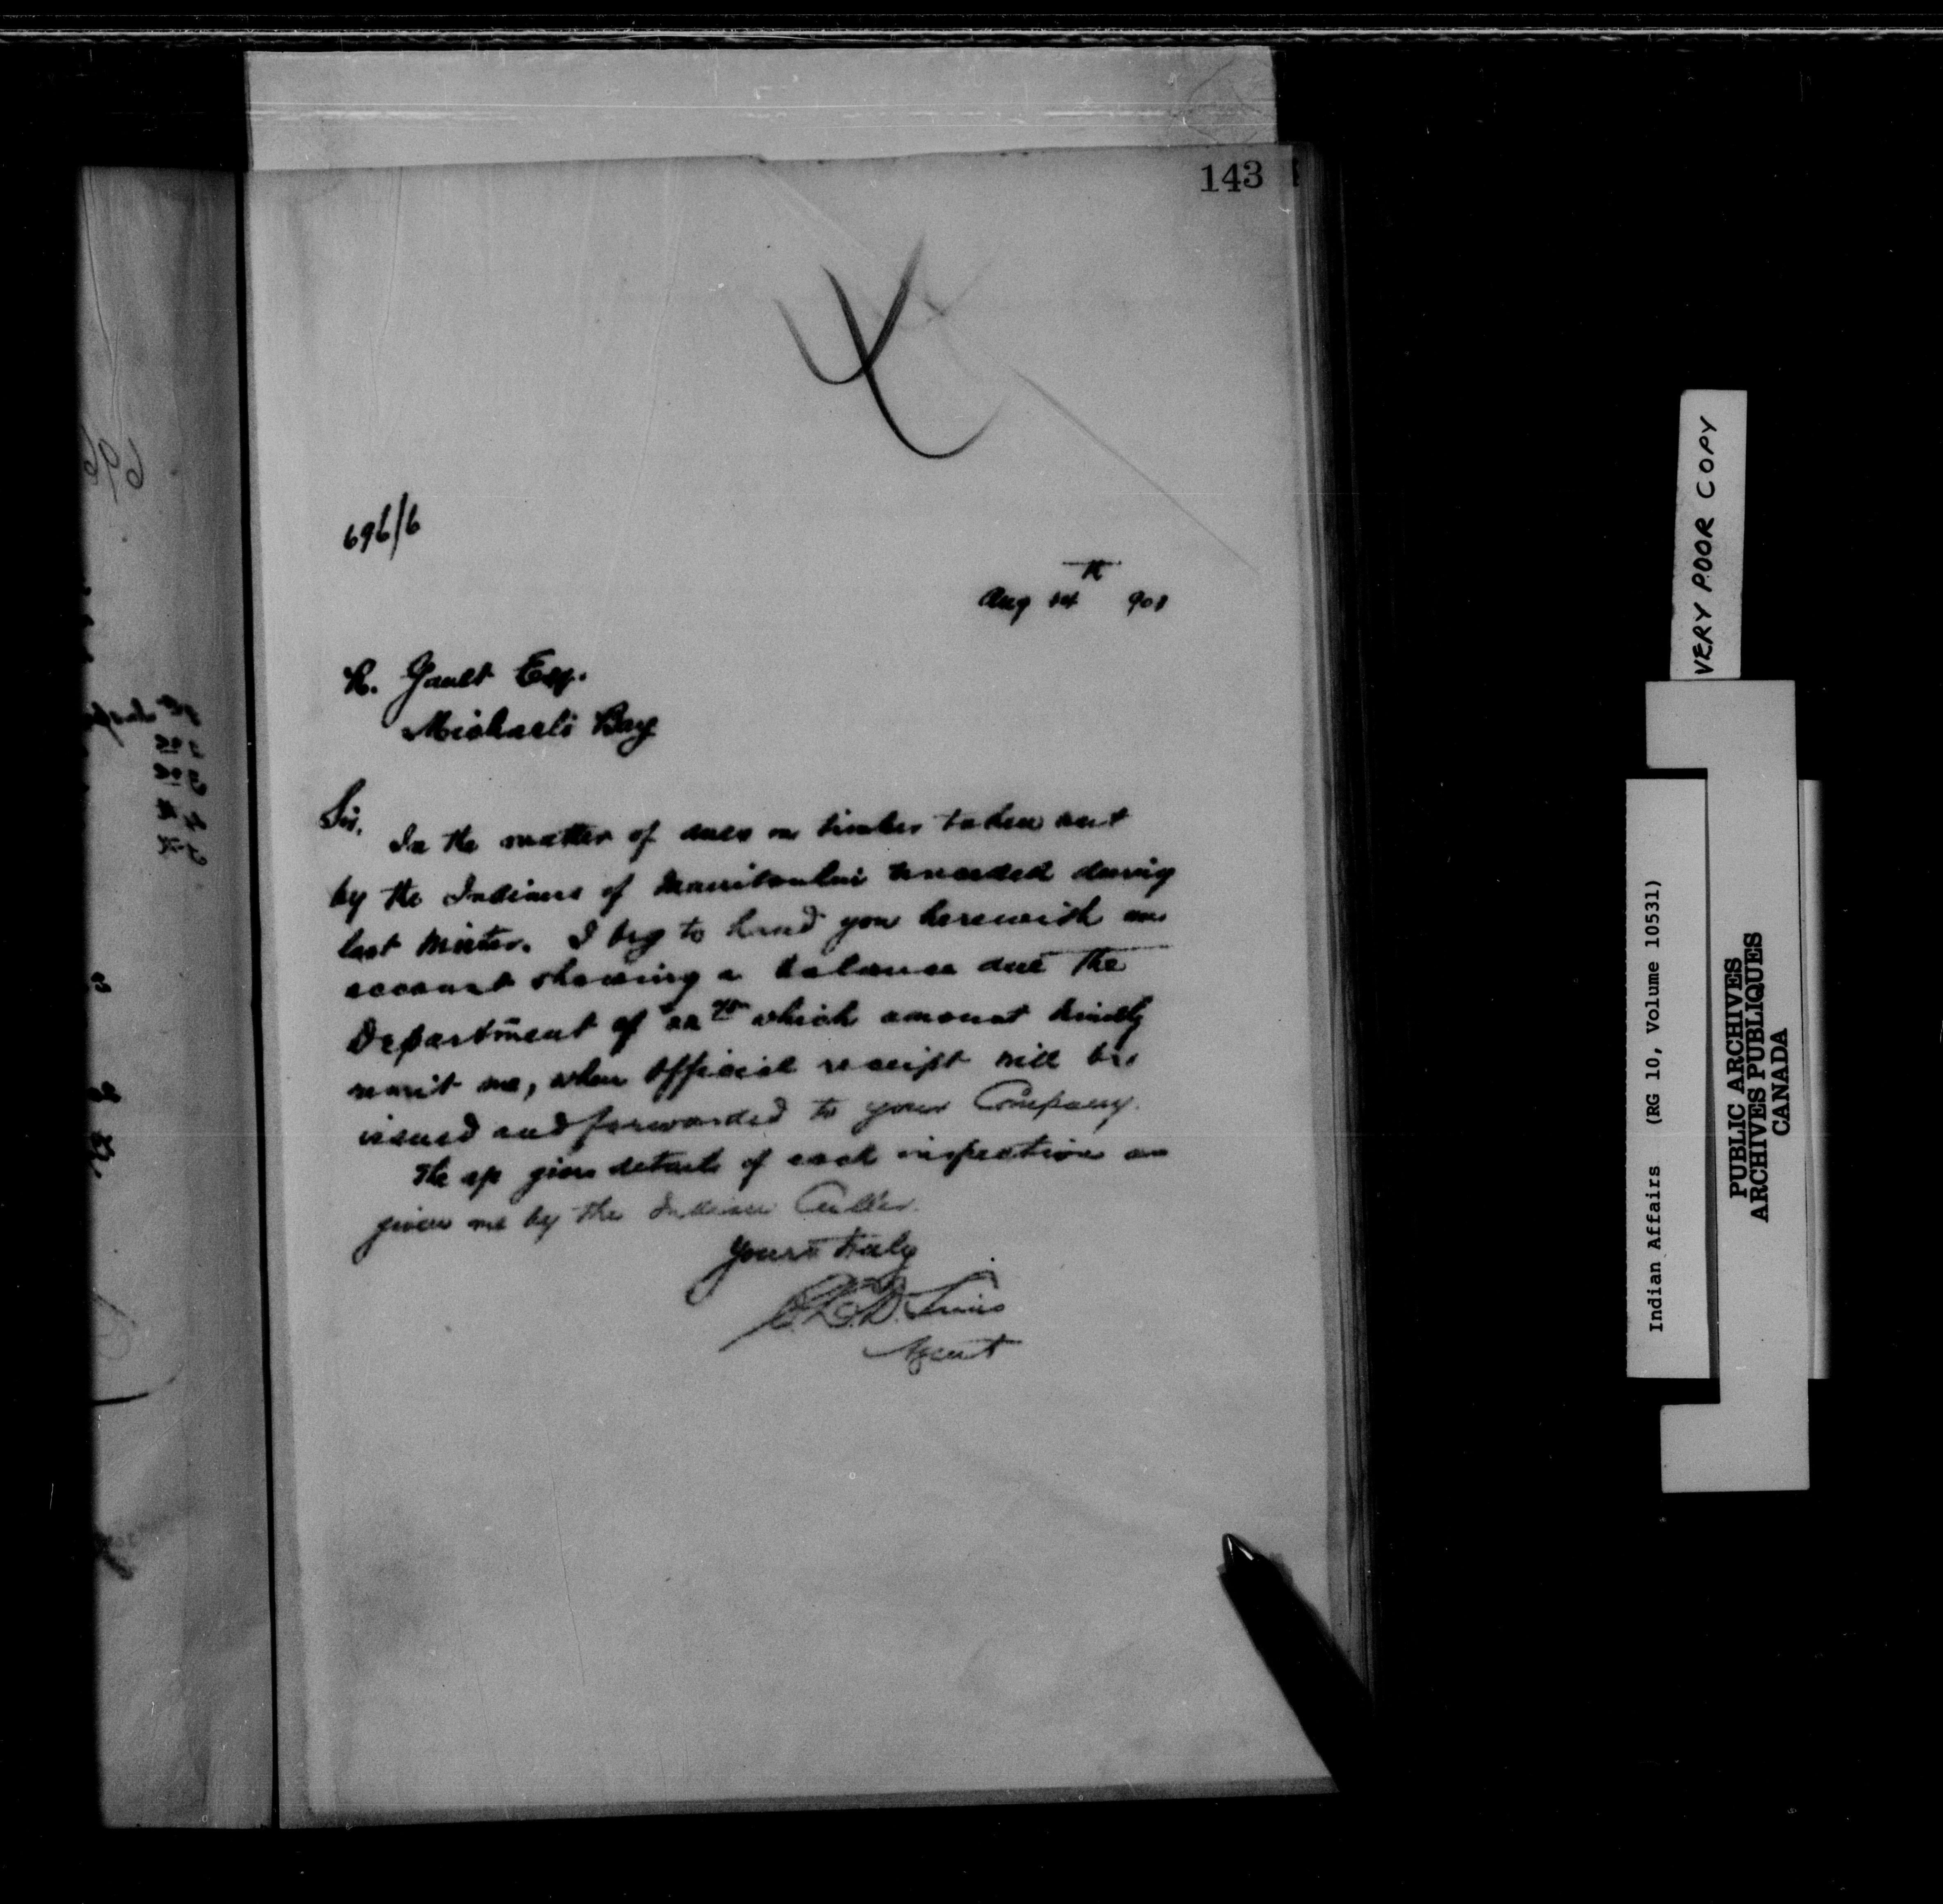 143
696/6
Aug 14th 901
R. Gault Esq.
Michael's Bay
Sir,
In the matter of dues on timber taken out
by the Indians of Manitoulin unceded during
last Winter. I beg to hand you herewith an
account showing a balance due the
Department of which amount kindly
remit me, when official receipt will be
issued and forwarded to your Company.
The a/c gives details of each inspection as
given me by the Indian Culler.
Yours truly
Agent
VERY POOR COPY
Indian Affairs (RG 10, Volume 10531)
PUBLIC ARCHIVES
ARCHIVES PUBLIQUES
CANADA